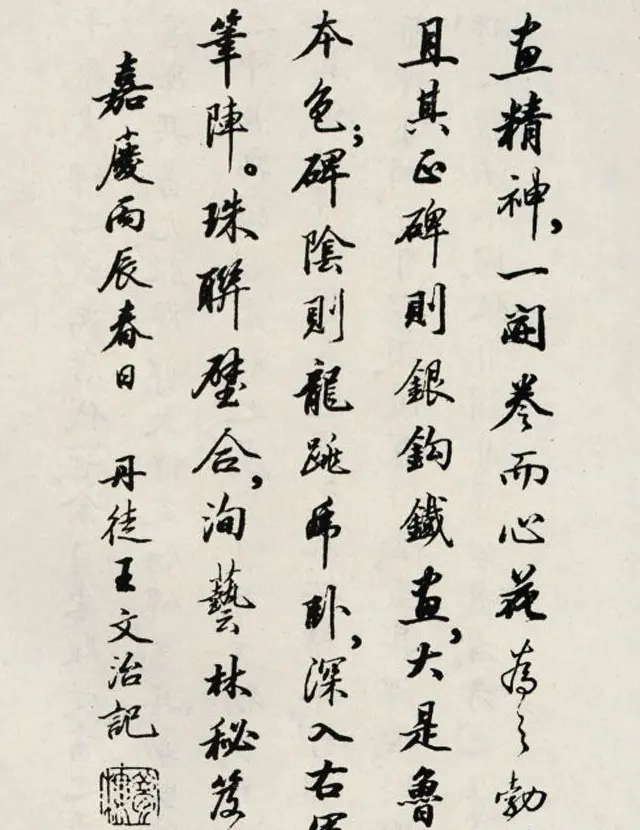 畫精神,一開卷而心花為之勃
且其正碑則銀鈎鐵畫,大是魯
本色;碑陰則龍跳虎卧,深入右軍
筆陣。珠聯璧合,洵藝林秘笈
嘉慶丙辰春日 丹徒王文治記